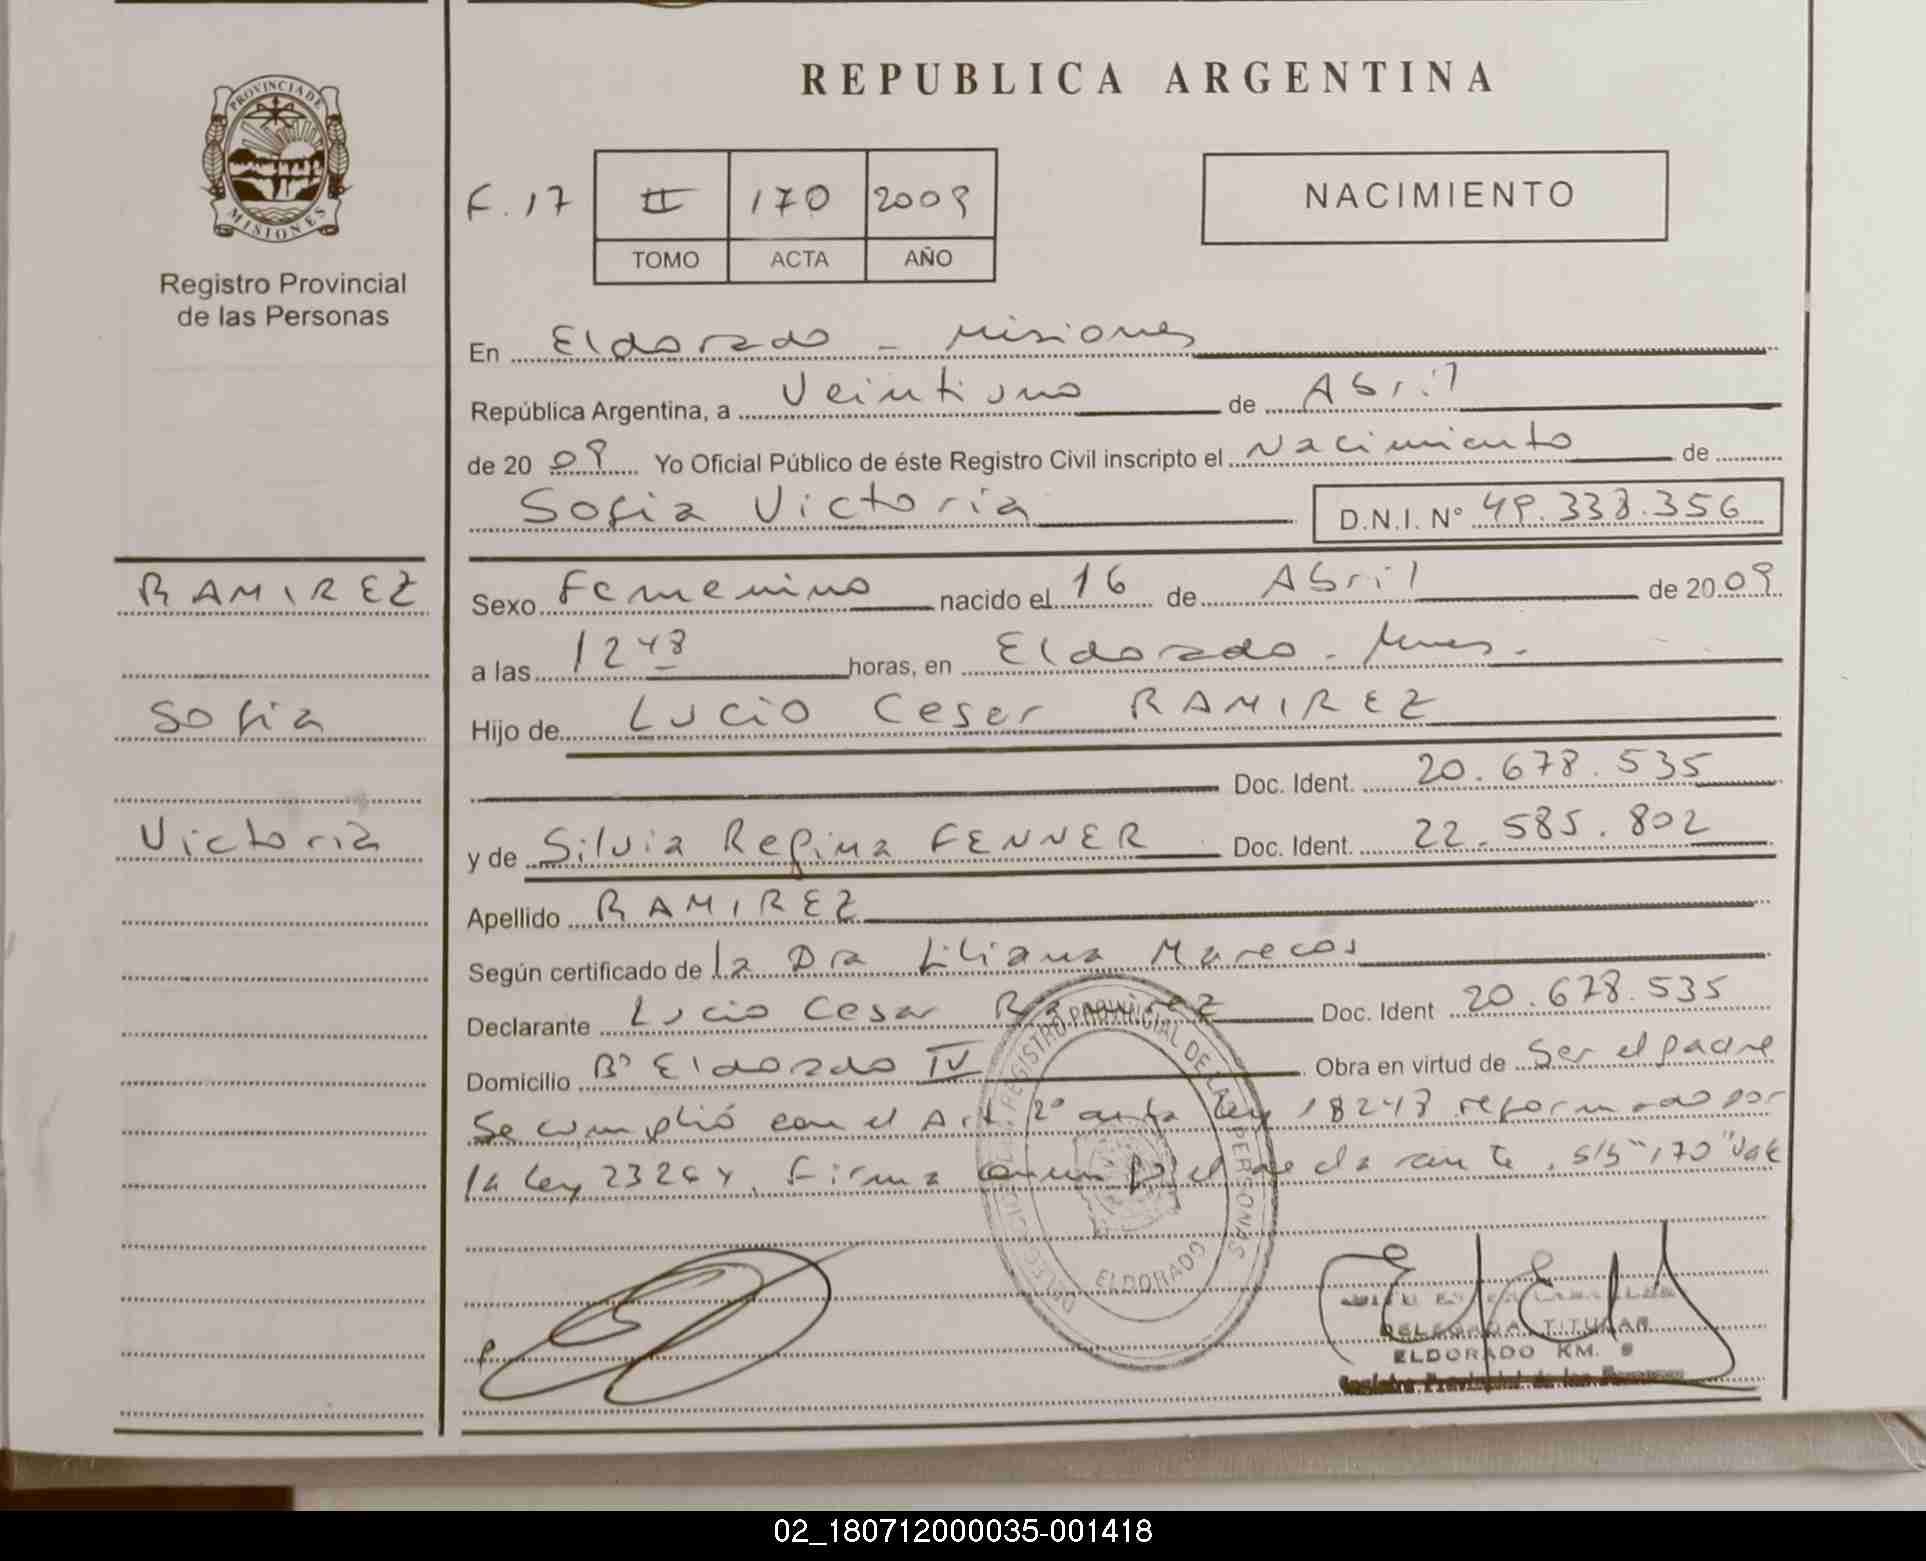 PROVINCIA DE
MISIONES
Registro Provincial
de las Personas
REPUBLICA ARGENTINA
F. 17 II 170 2009
TOMO ACTA AÑO
NACIMIENTO
En Eldorado - Misiones
República Argentina, a Veintiuno de Abril
de 20 09 Yo Oficial Público de éste Registro Civil inscripto el Nacimiento de
Sofia Victoria D.N.I. N° 49.338.356
RAMIREZ
Sofia
Victoria
Sexo Femenino nacido el 16 de Abril de 20 09
a las 12 48 horas, en Eldorado - Mnes.
Hijo de Lucio Cesar RAMIREZ
Doc. Ident. 20.678.535
y de Silvia Regina FENNER Doc. Ident. 22.585.802
Apellido RAMIREZ
Según certificado de la Dra Liliana Marecos
Declarante Lucio Cesar Ramirez Doc. Ident 20.678.535
Domicilio B° Eldorado IV Obra en virtud de Ser el padre
Se cumplió con el Art. 2° de la Ley 18248 reformado por
la Ley 23264. Firma el declarante. S/b "170" Vale
REGISTRO PROVINCIAL DE LAS PERSONAS
ELDORADO
DELEGADA TITULAR
ELDORADO KM. 9
Registro Provincial de las Personas
02_180712000035-001418